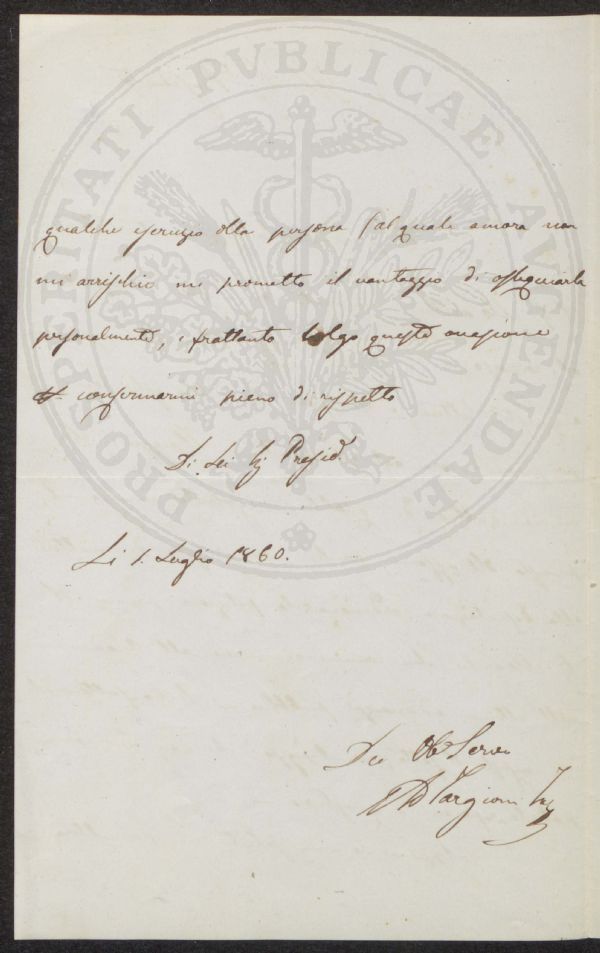 PROSPERITATI PVBLICAE AVGENDAE
qualche della persona (al quale ancora non
mi arrischio me prometto il vantaggio di ossequiarla
personalmente, e frattanto colgo questa occasione
confermarmi pieno di rispetto
Di Lei Presid.
Li 1. Luglio 1860.
Deo Ob Servo
AD Targioni Tozz